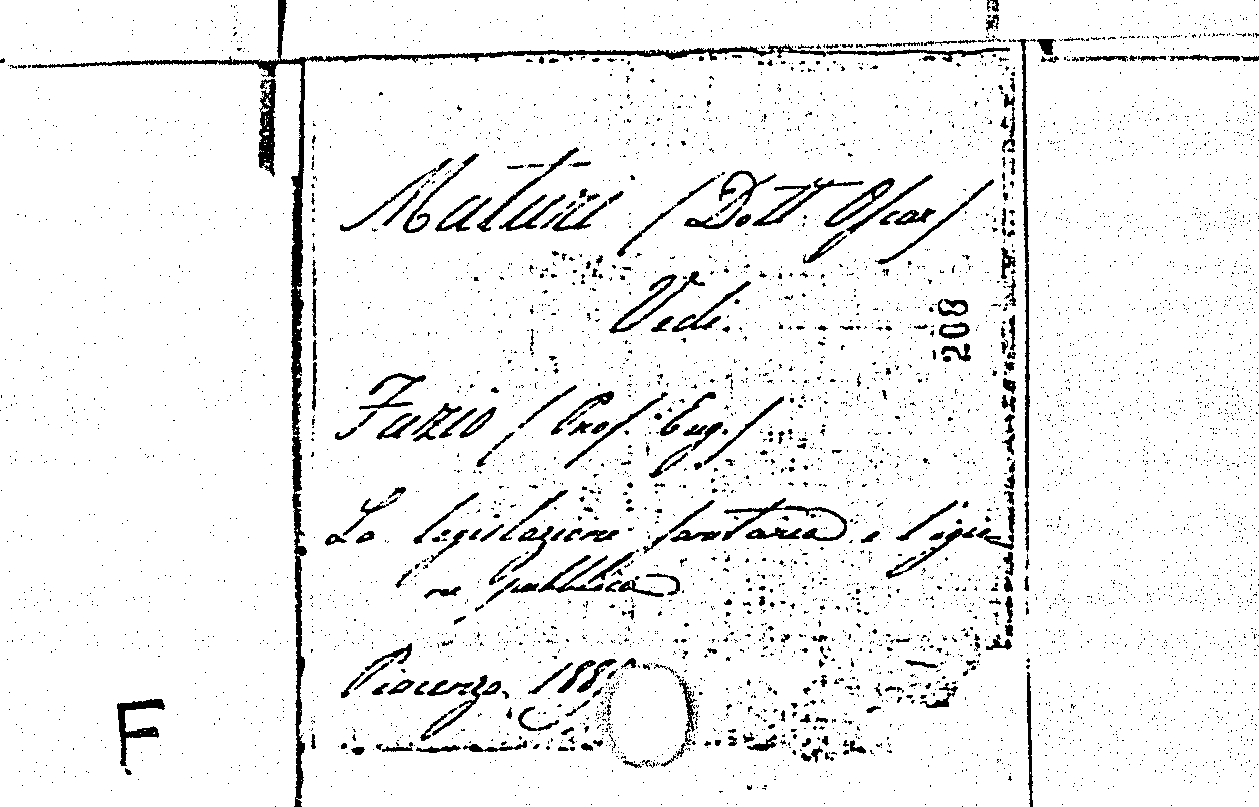 Maturi (Dott. Oscar)
Vedi.
208
Fazio (Prof. Eug.)
La legislazione sanitaria e l'igie-
ne pubblica
Piacenza,
F